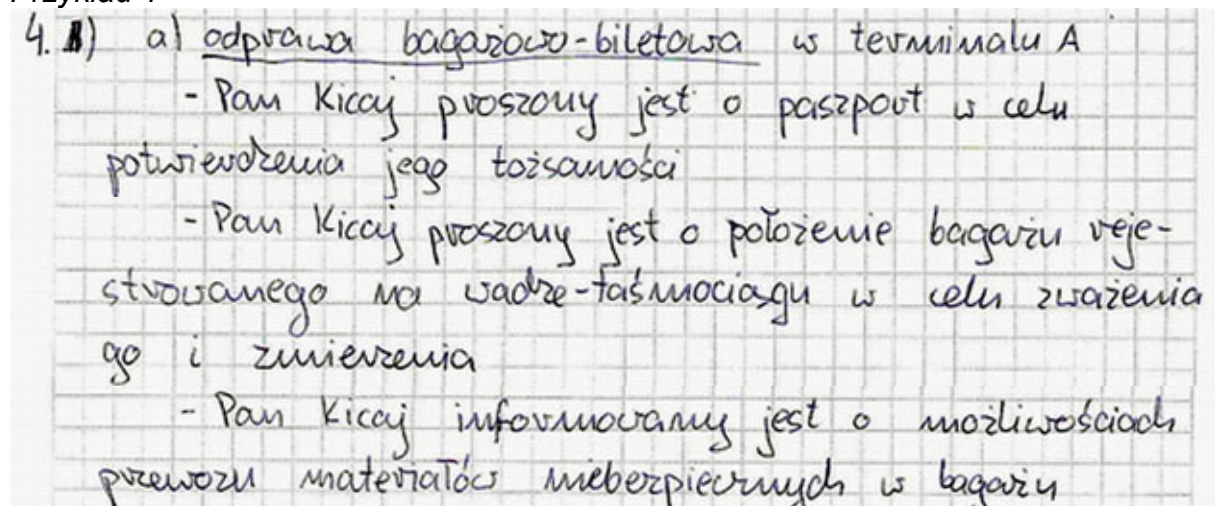 4. B) a) odprawa bagażowo-biletowa w terminalu A
- Pan Kicaj proszony jest o paszport w celu
potwierdzenia jego tożsamości
- Pan Kicaj proszony jest o położenie bagażu reje-
strowanego na wadze-taśmociągu w celu zważenia
go i zmierzenia
- Pan Kicaj informowany jest o możliwościach
przewozu materiałów niebezpiecznych w bagażu